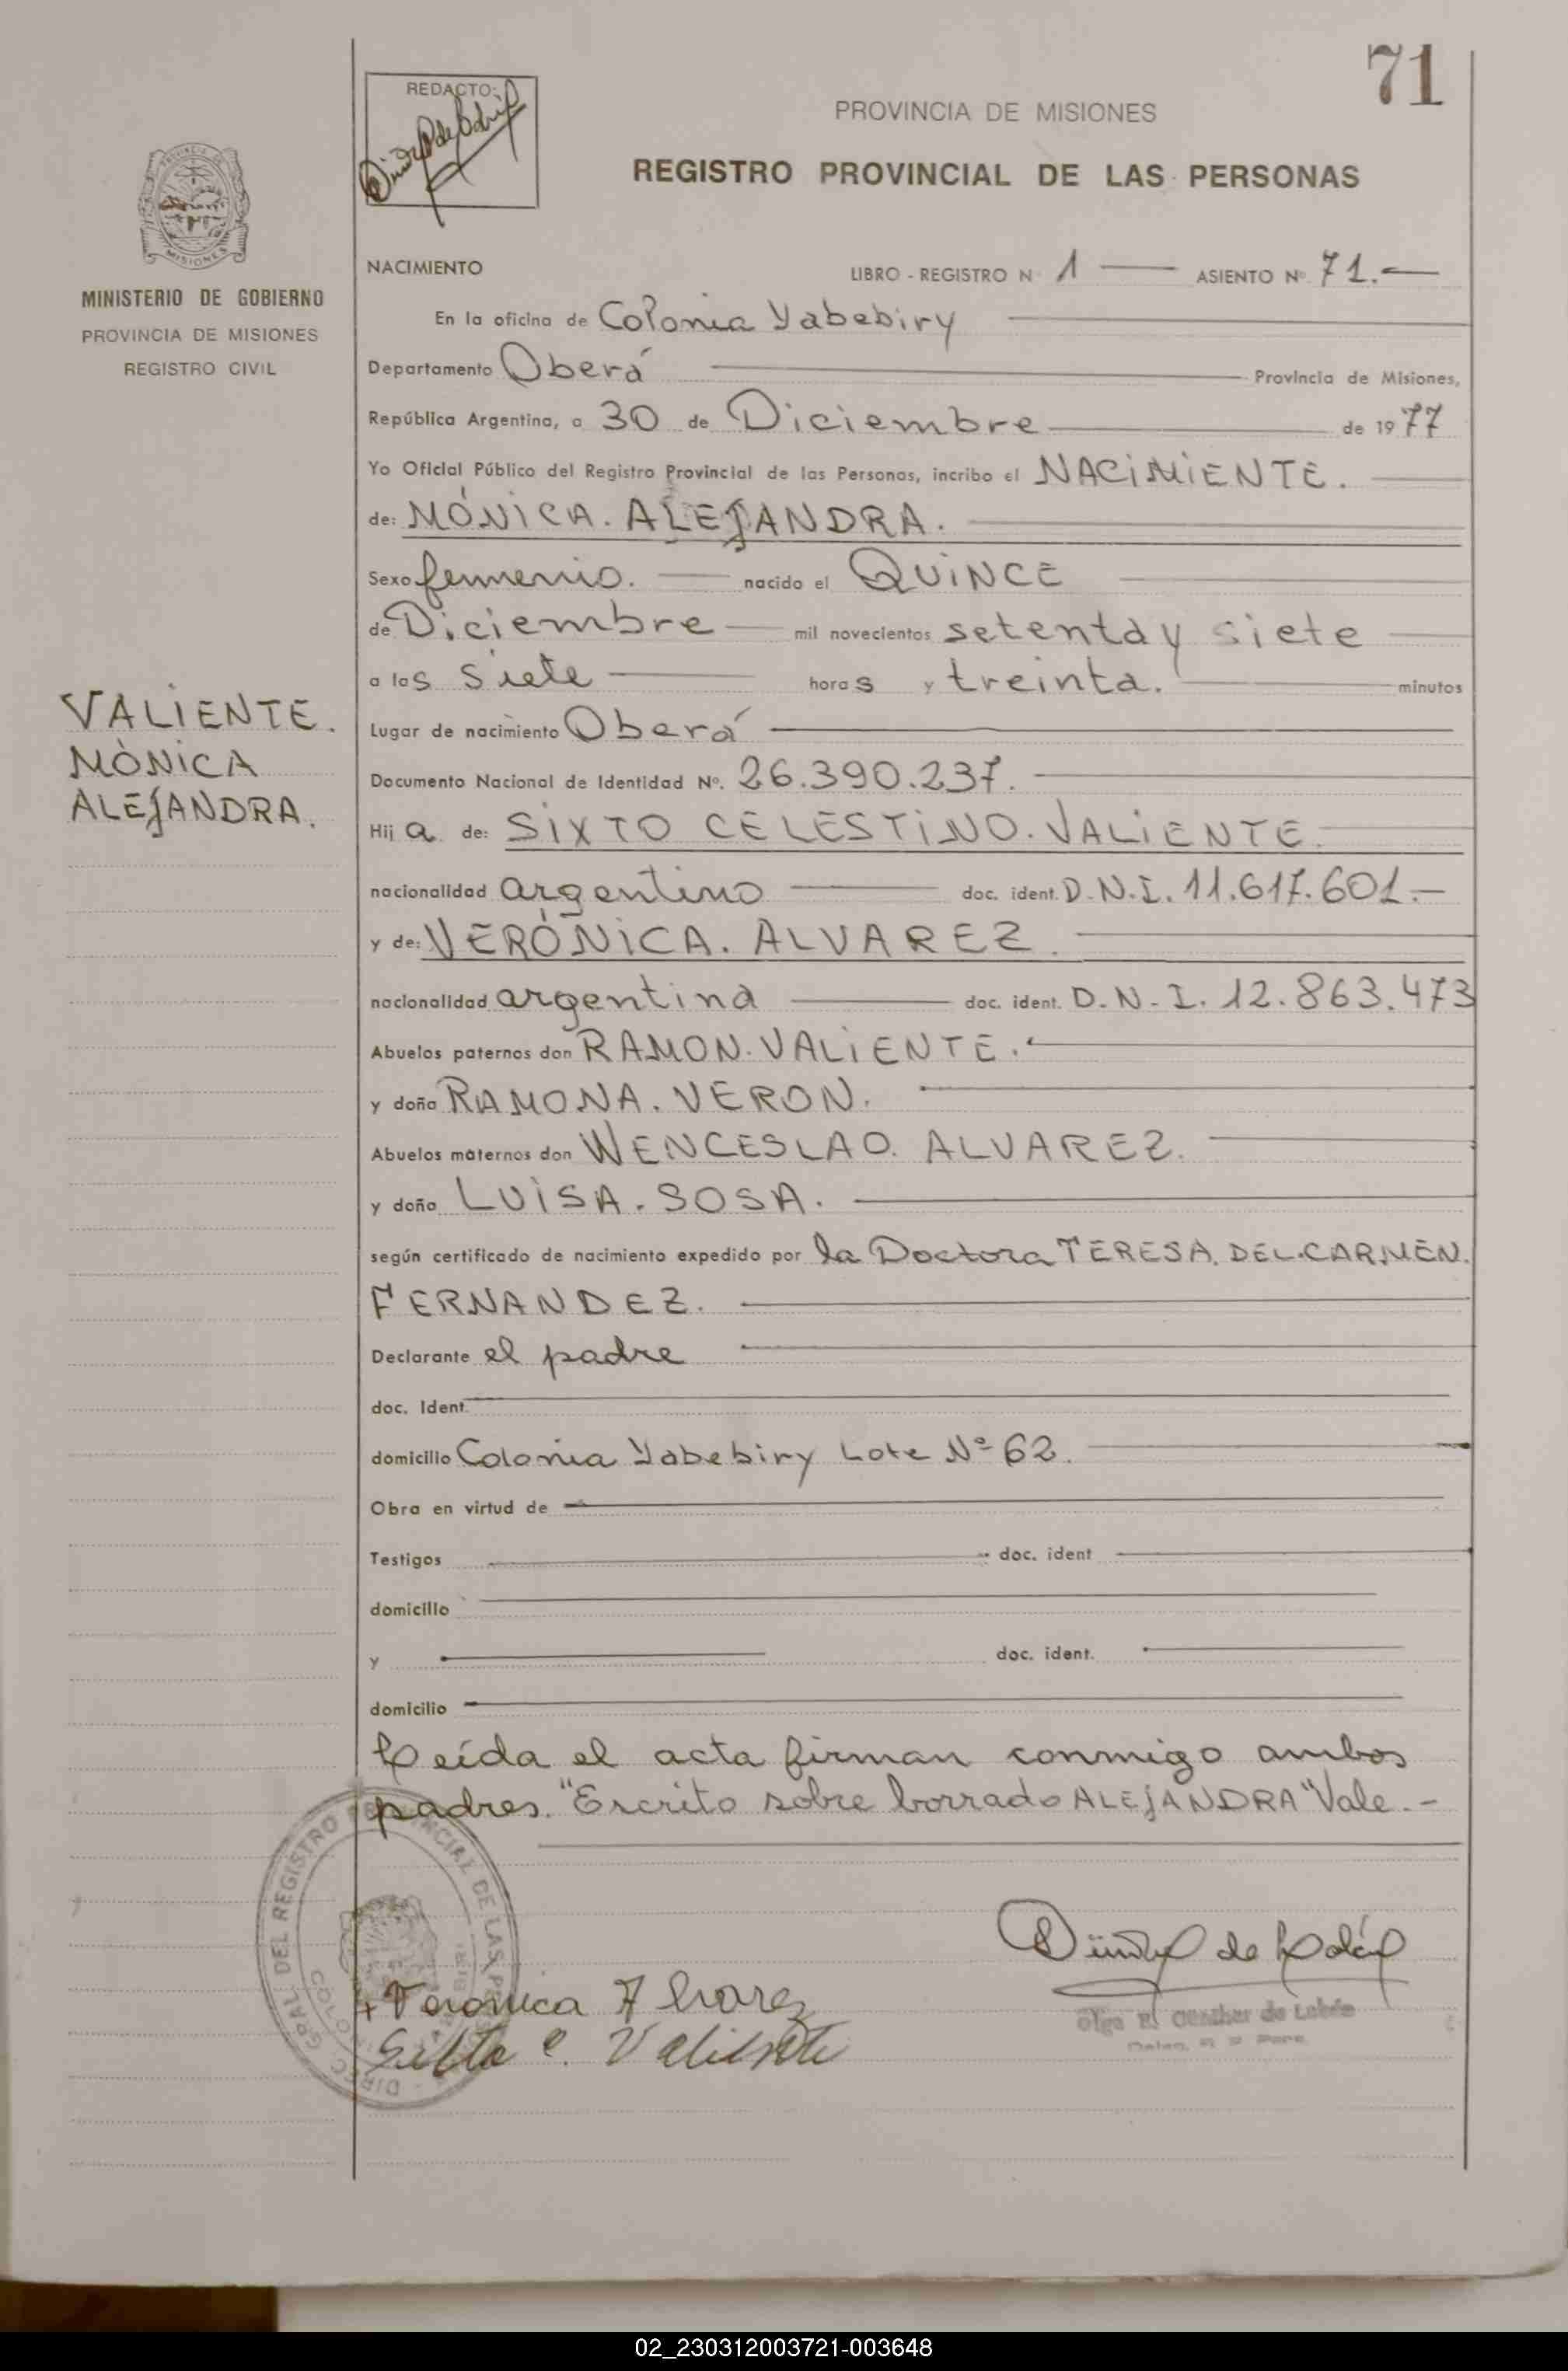 71
REDACTO:
PROVINCIA DE MISIONES
REGISTRO PROVINCIAL DE LAS PERSONAS
MISIONES
MINISTERIO DE GOBIERNO
PROVINCIA DE MISIONES
REGISTRO CIVIL
NACIMIENTO LIBRO - REGISTRO Nº 1 ASIENTO Nº 71.
En la oficina de Colonia Yabebiry
Departamento Oberá Provincia de Misiones,
República Argentina, a 30 de Diciembre de 1977
Yo Oficial Público del Registro Provincial de las Personas, incribo el NACIMIENTE.
de: MÓNICA. ALEJANDRA.
Sexo femenio. nacido el QUINCE
de Diciembre mil novecientos setenta y siete
a las siete horas y treinta. minutos
Lugar de nacimiento Oberá
Documento Nacional de Identidad Nº. 26.390.237.
Hij a de: SIXTO CELESTINO. VALIENTE.
nacionalidad argentino doc. ident. D.N.I. 11.617.601.-
y de: VERÓNICA. ALVAREZ.
nacionalidad argentina doc. ident. D.N.I. 12.863.473
Abuelos paternos don RAMON. VALIENTE.
y doña RAMONA. VERON.
Abuelos maternos don WENCESLAO. ALVAREZ.
y doña LUISA. SOSA.
según certificado de nacimiento expedido por la Doctora TERESA. DEL.CARMEN.
FERNANDEZ.
Declarante el padre
doc. Ident.
domicilio Colonia Yabebiry Lote Nº 62.
Obra en virtud de
Testigos doc. ident
domicilio
y doc. ident.
domicilio
Leída el acta firman conmigo ambos
padres. "Escrito sobre borrado ALEJANDRA" Vale.-
VALIENTE.
MÒNICA
ALEJANDRA.
DIREC. GRAL. DEL REGISTRO PROVINCIAL DE LAS PERSONAS
Veronica Alvarez
Sixto C. Valiente
Olga E. Günther de
02_230312003721-003648